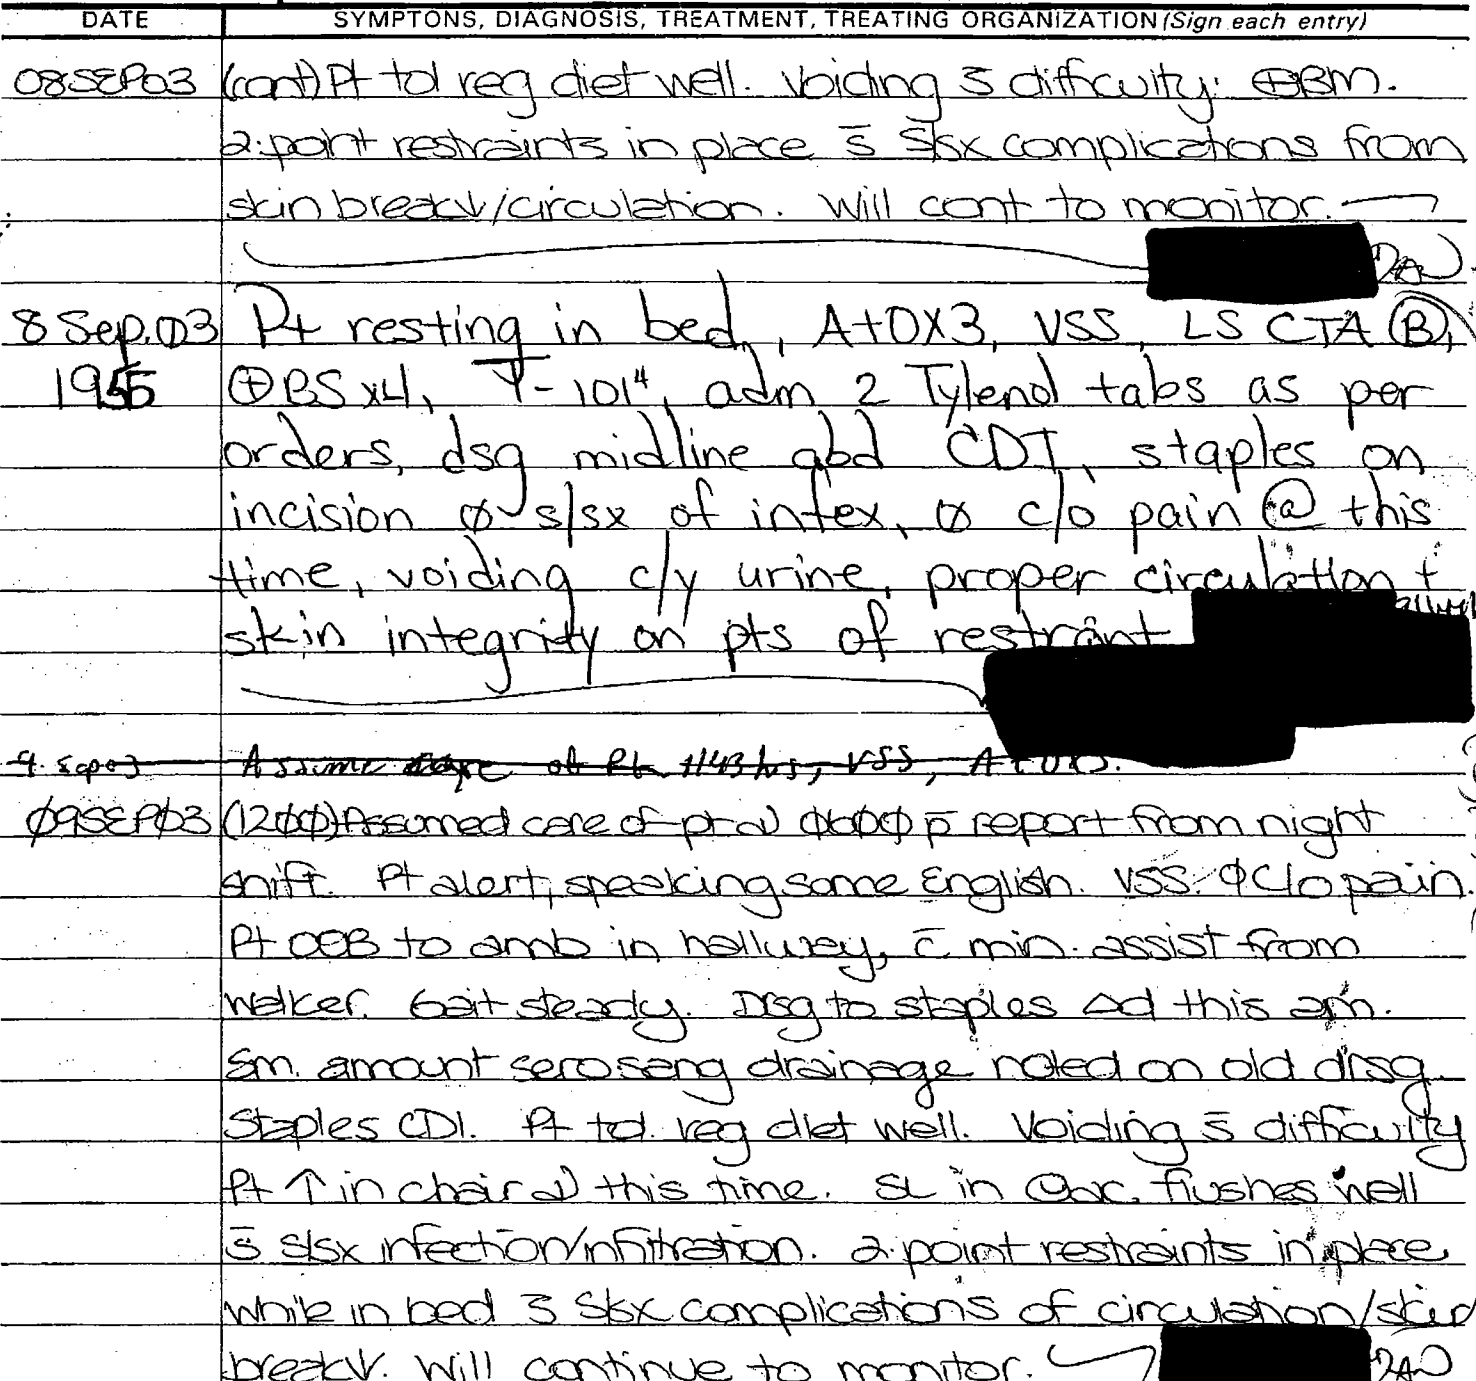 DATE SYMPTONS, DIAGNOSIS, TREATMENT, TREATING ORGANIZATION (Sign each entry)
08SEP03 (cont) Pt tol reg diet well. Voiding s̄ difficulty. ⊕BM.
2-point restraints in place s̄ S/sx complications from
skin break↓/circulation. Will cont to monitor.
8 Sep.03 Pt resting in bed, A+OX3, VSS, LS CTA Ⓑ,
1955 ⊕BS x4, T-101⁴, adm 2 Tylenol tabs as per
orders, dsg midline abd CDI, staples on
incision ∅ s/sx of infex, ∅ c/o pain @ this
time, voiding c/y urine, proper circulation +
skin integrity on pts of restraint
9 Sep03 Assume care of Pt 1143 hrs, VSS, A+OX3.
09SEP03 (1200) Assumed care of pt @ 0600 p̄ report from night
shift. Pt alert, speaking some English. VSS. ∅ C/o pain.
Pt OOB to amb in hallway, c̄ min. assist from
walker. Gait steady. Drsg to staples Δd this am.
Sm. amount serosang drainage noted on old drsg.
Staples CDI. Pt tol. reg diet well. Voiding s̄ difficulty
Pt ↑ in chair @ this time. SL in ac, flushes well
s̄ s/sx infection/infiltration. 2-point restraints in place
while in bed s̄ S/sx complications of circulation/skin
break↓. Will continue to monitor.